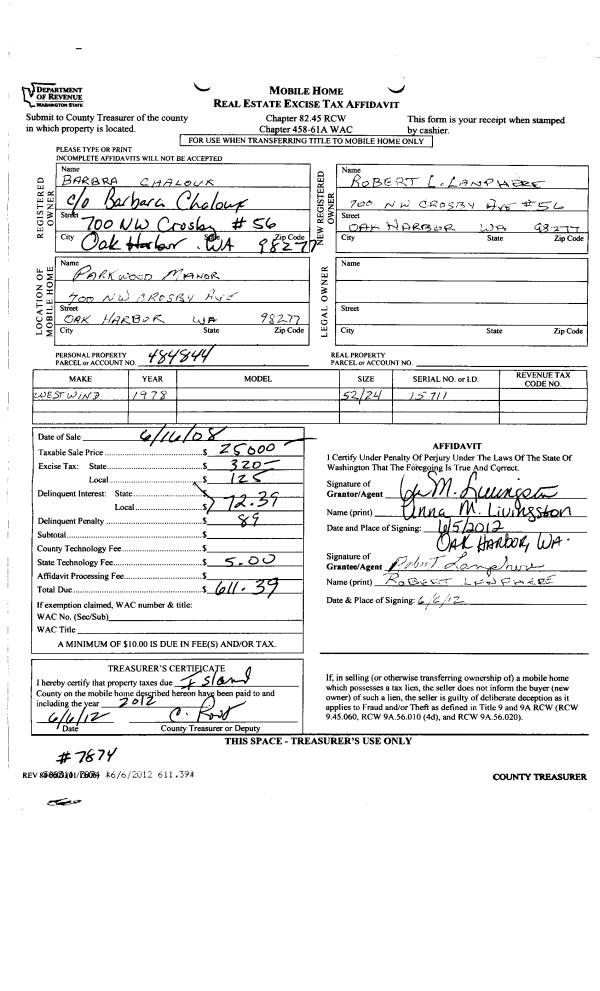 DEPARTMENT
OF REVENUE
WASHINGTON STATE
MOBILE HOME
REAL ESTATE EXCISE TAX AFFIDAVIT
Submit to County Treasurer of the county
in which property is located.
Chapter 82.45 RCW
Chapter 458-61A WAC
This form is your receipt when stamped
by cashier.
FOR USE WHEN TRANSFERRING TITLE TO MOBILE HOME ONLY
PLEASE TYPE OR PRINT
INCOMPLETE AFFIDAVITS WILL NOT BE ACCEPTED
REGISTERED OWNER
Name
BARBRA CHALOUX
c/o Barbara Chaloux
Street 700 NW Crosby #56
City State Zip Code
Oak Harbor WA 98277
NEW REGISTERED OWNER
Name
ROBERT L. LANPHERE
700 NW CROSBY AVE #56
Street
OAK HARBOR WA 98277
City State Zip Code
LOCATION OF MOBILE HOME
Name
PARKWOOD MANOR
700 NW CROSBY AVE
Street
OAK HARBOR WA 98277
City State Zip Code
LEGAL OWNER
Name
Street
City State Zip Code
PERSONAL PROPERTY
PARCEL or ACCOUNT NO. 484844
REAL PROPERTY
PARCEL or ACCOUNT NO.
MAKE YEAR MODEL SIZE SERIAL NO. or I.D. REVENUE TAX CODE NO.
WESTWIND 1978 52/24 15711
Date of Sale 6/16/08
Taxable Sale Price $ 25000
Excise Tax: State $ 320
Local $ 125
Delinquent Interest: State $
Local $ 72.39
Delinquent Penalty $ 89
Subtotal $
County Technology Fee $
State Technology Fee $ 5.00
Affidavit Processing Fee $
Total Due $ 611.39
If exemption claimed, WAC number & title:
WAC No. (Sec/Sub)
WAC Title
A MINIMUM OF $10.00 IS DUE IN FEE(S) AND/OR TAX.
AFFIDAVIT
I Certify Under Penalty Of Perjury Under The Laws Of The State Of
Washington That The Foregoing Is True And Correct.
Signature of
Grantor/Agent M. Livingston
Name (print) Anna M. Livingston
Date and Place of Signing: 6/5/2012
OAK HARBOR, WA.
Signature of
Grantee/Agent Robert Lanphere
Name (print) ROBERT LENPHERE
Date & Place of Signing: 6/6/12
TREASURER'S CERTIFICATE
I hereby certify that property taxes due Island
County on the mobile home described hereon have been paid to and
including the year 2012
6/6/12
Date County Treasurer or Deputy
If, in selling (or otherwise transferring ownership of) a mobile home
which possesses a tax lien, the seller does not inform the buyer (new
owner) of such a lien, the seller is guilty of deliberate deception as it
applies to Fraud and/or Theft as defined in Title 9 and 9A RCW (RCW
9.45.060, RCW 9A.56.010 (4d), and RCW 9A.56.020).
THIS SPACE - TREASURER'S USE ONLY
#7874
REV 6/6/2012 611.39#
COUNTY TREASURER